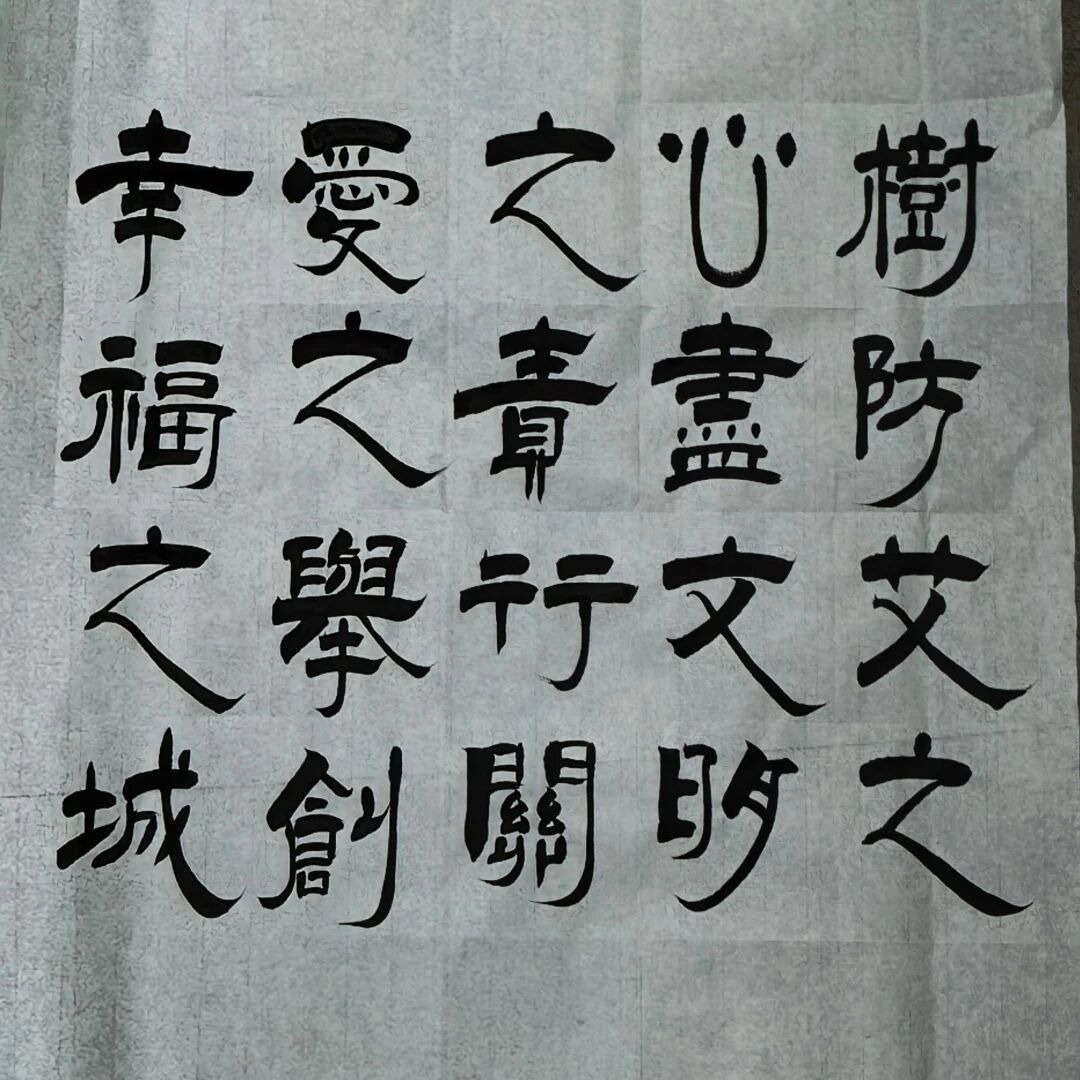 樹防艾之
心盡文明
之責行關
愛之舉創
幸福之城